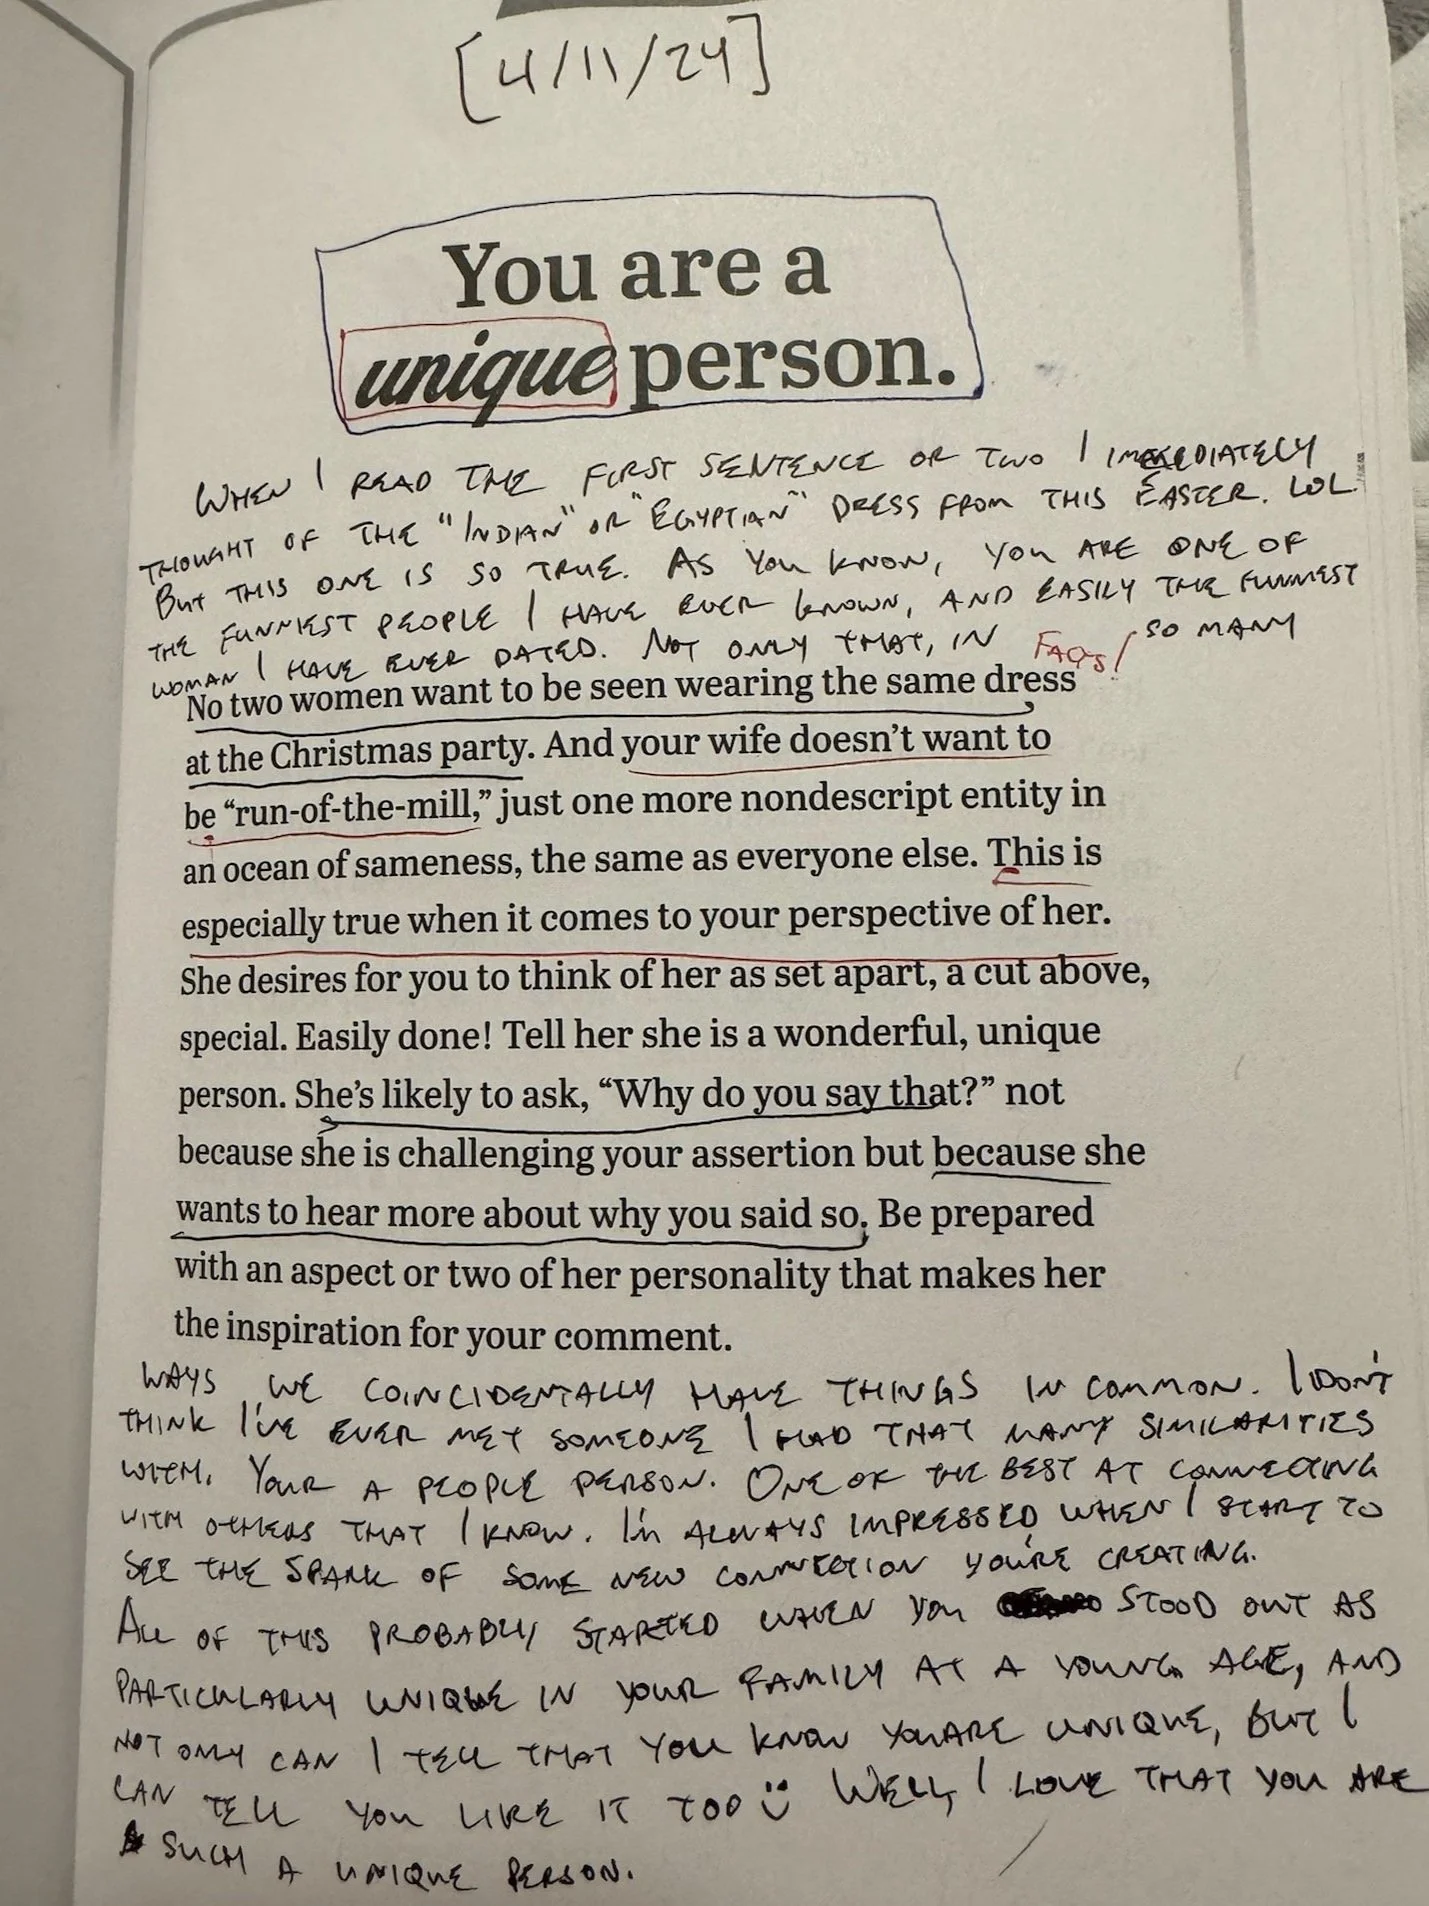 [4/11/24]
You are a
unique person.
WHEN I READ THE FIRST SENTENCE OR TWO I IMMEDIATELY
THOUGHT OF THE "INDIAN" OR "EGYPTIAN" DRESS FROM THIS EASTER. LOL.
BUT THIS ONE IS SO TRUE. AS YOU KNOW, YOU ARE ONE OF
THE FUNNIEST PEOPLE I HAVE EVER KNOWN, AND EASILY THE FUNNIEST
WOMAN I HAVE EVER DATED. NOT ONLY THAT, IN SO MANY
FACTS!
No two women want to be seen wearing the same dress
at the Christmas party. And your wife doesn't want to
be “run-of-the-mill,” just one more nondescript entity in
an ocean of sameness, the same as everyone else. This is
especially true when it comes to your perspective of her.
She desires for you to think of her as set apart, a cut above,
special. Easily done! Tell her she is a wonderful, unique
person. She's likely to ask, “Why do you say that?” not
because she is challenging your assertion but because she
wants to hear more about why you said so. Be prepared
with an aspect or two of her personality that makes her
the inspiration for your comment.
WAYS WE COINCIDENTALLY HAVE THINGS IN COMMON. I DON'T
THINK I'VE EVER MET SOMEONE I HAD THAT MANY SIMILARITIES
WITH. YOUR A PEOPLE PERSON. ONE OF THE BEST AT CONNECTING
WITH OTHERS THAT I KNOW. I'M ALWAYS IMPRESSED WHEN I START TO
SEE THE SPARK OF SOME NEW CONNECTION YOU'RE CREATING.
ALL OF THIS PROBABLY STARTED WHEN YOU STOOD OUT AS
PARTICULARLY UNIQUE IN YOUR FAMILY AT A YOUNG AGE, AND
NOT ONLY CAN I TELL THAT YOU KNOW YOU ARE UNIQUE, BUT I
CAN TELL YOU LIKE IT TOO WELL, I LOVE THAT YOU ARE
SUCH A UNIQUE PERSON.